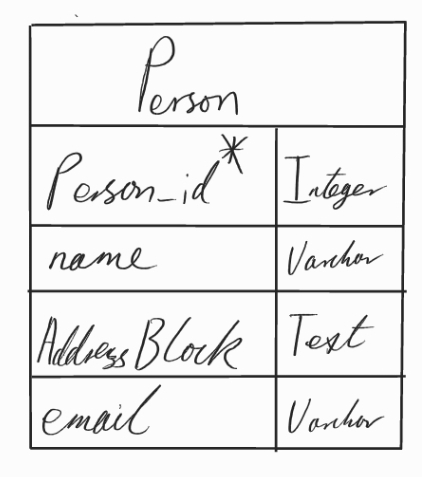 Person
Person_id* Integer
name Varchar
Address Block Text
email Varchar